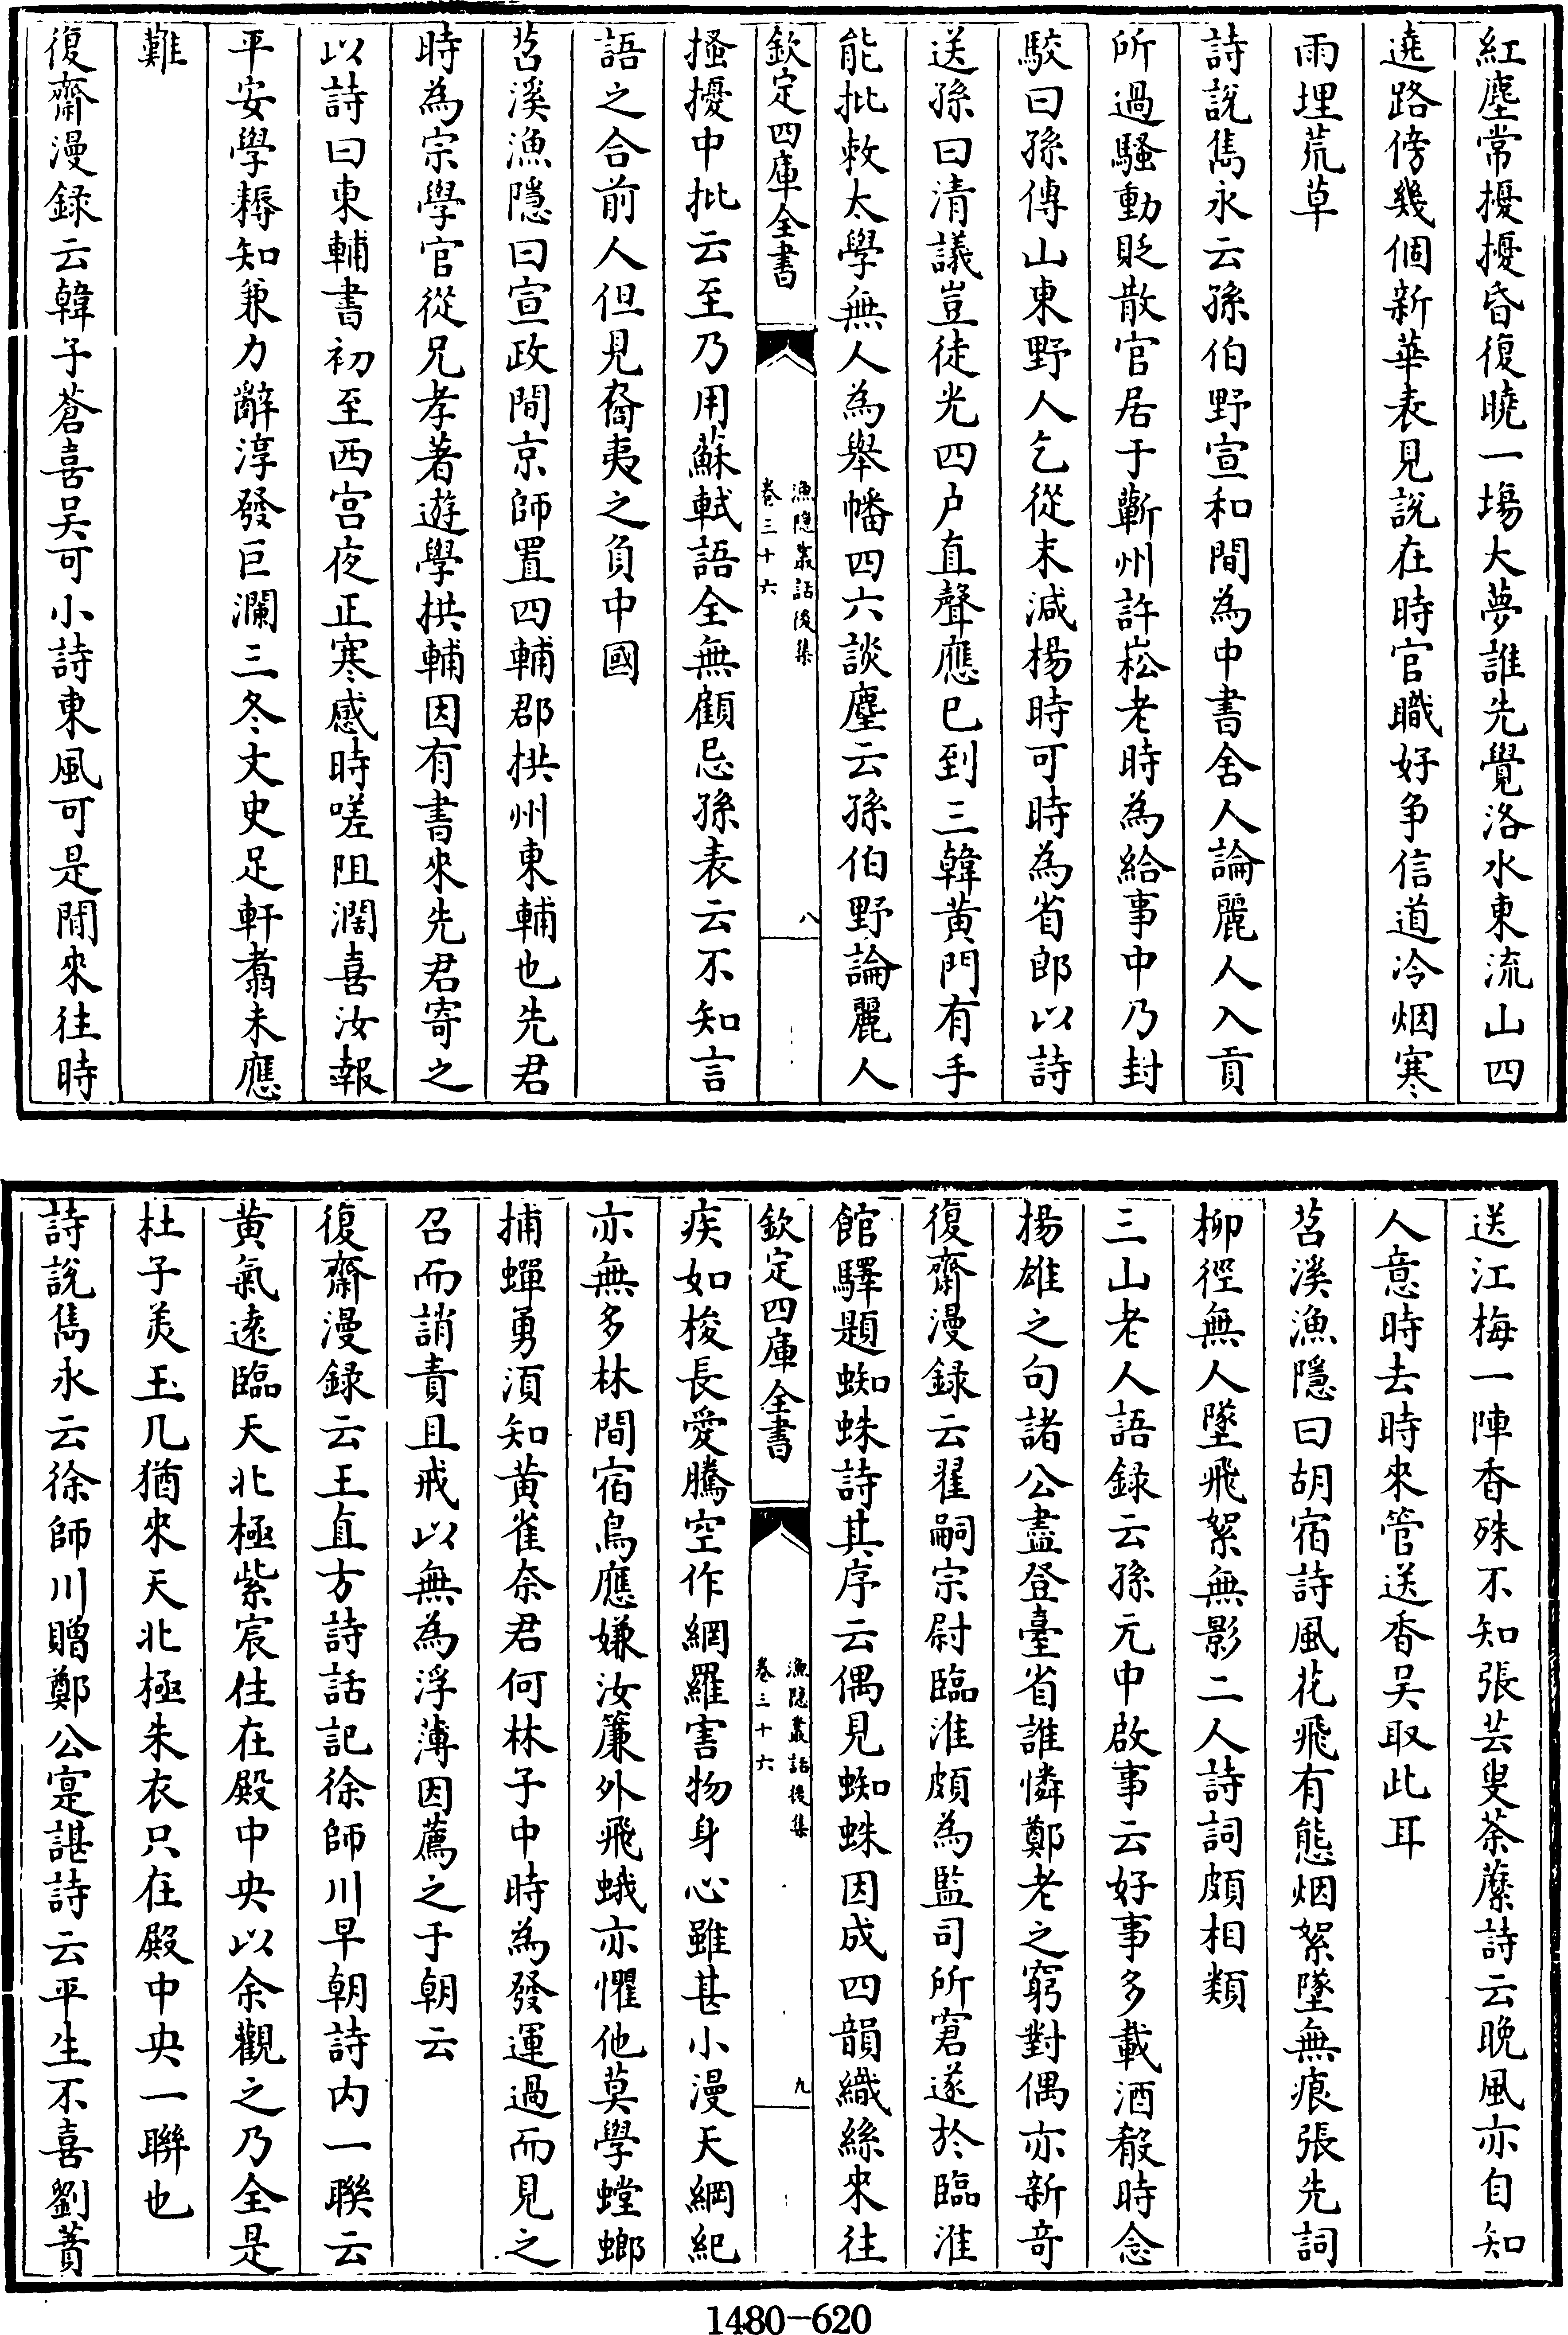 紅塵常擾擾昏復曉一塲大夢誰先覺洛水東流山四
遶路傍幾個新華表見說在時官職好争信道冷烟寒
雨埋荒草
詩說雋永云孫伯野宣和間為中書舍人論麗人入貢
所過騷動貶散官居于蘄州許崧老時為給事中乃封
駮曰孫傳山東野人乞從末減楊時可時為省郎以詩
送孫曰清議豈徒光四户直聲應已到三韓黄門有手
能批敕太學無人為舉幡四六談麈云孫伯野論麗人
欽定四庫全書
漁隠叢話後集
卷三十六
八
搔擾中批云至乃用蘇軾語全無顧忌孫表云不知言
語之合前人但見裔夷之負中國
苕溪漁隱曰宣政間京師置四輔郡拱州東輔也先君
時為宗學官從兄孝著遊學拱輔因有書來先君寄之
以詩曰東輔書初至西宫夜正寒感時嗟阻濶喜汝報
平安學耨知兼力辭淳發巨瀾三冬文史足軒翥未應
難
復齋漫録云韓子蒼喜吴可小詩東風可是閒來往時
送江梅一陣香殊不知張芸叟荼蘼詩云晚風亦自知
人意時去時來管送香吴取此耳
苕溪漁隱曰胡宿詩風花飛有態烟絮墜無痕張先詞
柳徑無人墜飛絮無影二人詩詞頗相類
三山老人語録云孫元中啟事云好事多載酒殽時念
楊雄之句諸公盡登臺省誰憐鄭老之窮對偶亦新竒
復齋漫録云翟嗣宗尉臨淮頗為監司所窘遂於臨淮
館驛題蜘蛛詩其序云偶見蜘蛛因成四韻織絲來往
欽定四庫全書
漁隠叢話後集
卷三十六
九
疾如梭長愛騰空作網羅害物身心雖甚小漫天綱紀
亦無多林間宿鳥應嫌汝簾外飛蛾亦懼他莫學螳螂
捕蟬勇須知黄雀奈君何林子中時為發運過而見之
召而誚責且戒以無為浮薄因薦之于朝云
復齋漫録云王直方詩話記徐師川早朝詩内一聨云
黄氣遠臨天北極紫宸住在殿中央以余觀之乃全是
杜子美玉几猶來天北極朱衣只在殿中央一聨也
詩說雋永云徐師川贈鄭公寔諶詩云平生不喜劉蕡
1480-620